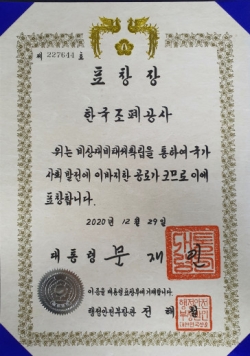 제 227644 호
표 창 장
한국조폐공사
위는 비상대비태세확립을 통하여 국가
사회발전에 이바지한 공로가 크므로 이에
표창합니다.
2020년 12월 29일
대통령 문 재 인
이 증을 대통령표창부에 기재합니다.
행정안전부장관 진